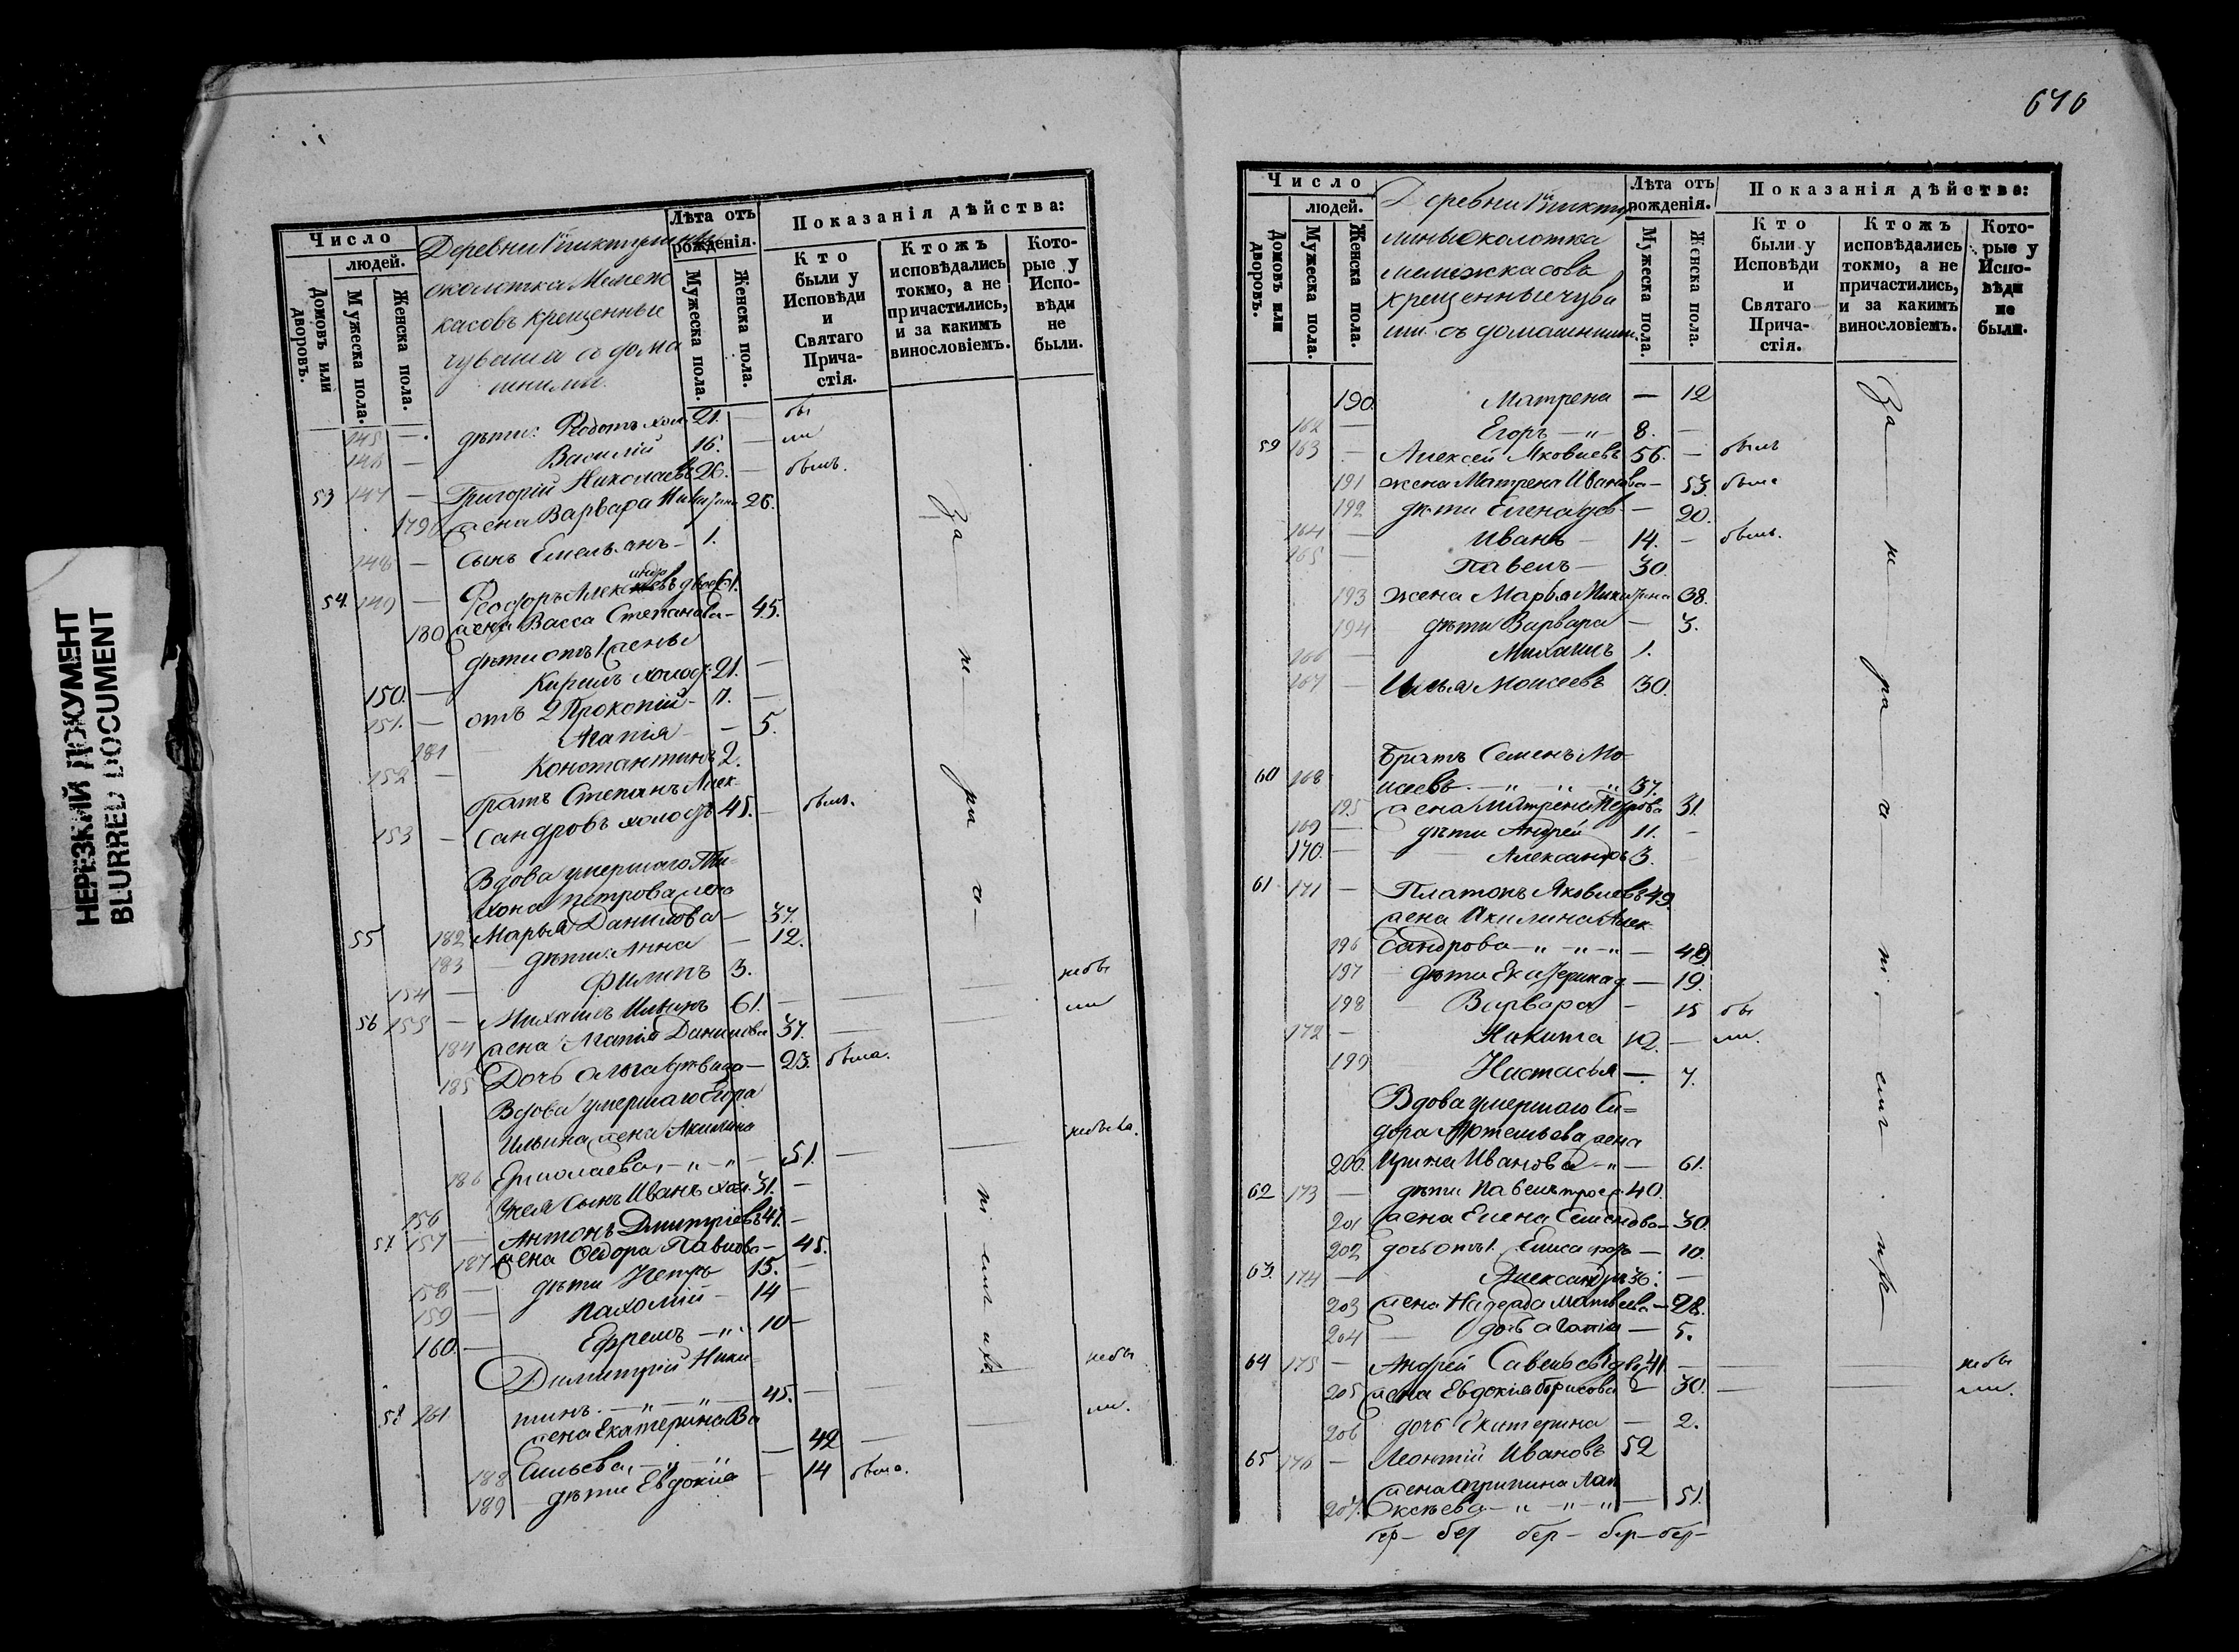 НЕРЕЗКИЙ ДОКУМЕНТ
BLURRED DOCUMENT
Число
людей.
Домовъ или дворовъ.
Мужеска пола.
Женска пола.
Деревни
околотка
касовъ крещенные
чуваша съ дома
шними.
Лѣта отъ рожденія.
Мужеска пола.
Женска пола.
Показанія дѣйства:
Кто были у Исповѣди и Святаго Прича-стія.
Ктожъ исповѣдались токмо, а не причастились, и за какимъ винословіемъ.
Кото-рые у Испо-вѣди не были.
145 — дѣти: Ѳедотъ хол. 21. — бы
146 — Василій 16. — ли
53 147 — Григорій Николаевъ 26. — былъ.
179 жена Варвара 26.
148 — сынъ Емельянъ — 1.
54. 149 — Ѳеодоръ 61.
180 жена Васса Степанова — 45.
дѣти отъ 1 жены
150. — Кирилъ холос: 21. —
151. — отъ 2 Прокопій — —
181 Агапія — 5.
152 — Константинъ 2.
братъ Степанъ Алек-
153 — сандровъ холос 45. — былъ.
Вдова умершаго Ти=
хона Петрова жена
55 182 Марья Данилова — 37.
183 — дѣти: Анна — 12.
154 — Филипъ 3.
56 155 — Михаилъ Ильинъ 61. — небы
184 жена Агапія Данилова 37. — ли
185 Дочь Ольга дѣвица — 23. была.
Вдова умершаго Егора
Ильина жена Акилина
186 Ермолаева, — „ — „ — 51. — небыла.
156 Нея сынъ Иванъ хол. 31. —
57. 157 — Антонъ Дмитріевъ 47. —
187 жена Ѳедора Павлова — 45.
158 — дѣти Петръ 15. —
159 — Пахомій — 14 —
160. — Ефремъ — „ 10 —
Димитрій Ники=
58 161 тинъ. — „ — „ — 45. — небы
жена Екатерина Ва
188 сильева, — „ — „ — 42 — ли.
189 — дѣти Евдокія — 14 была.
За не ра чи ті ем ихъ
646
Число
людей.
Домовъ или дворовъ.
Мужеска пола.
Женска пола.
Деревни
лины околотка
касовъ
крещенные чува
ши съ домашними.
Лѣта отъ рожденія.
Мужеска пола.
Женска пола.
Показанія дѣйства:
Кто были у Исповѣди и Святаго Прича-стія.
Ктожъ исповѣдались токмо, а не причастились, и за какимъ винословіемъ.
Кото-рые у Испо-вѣди не были.
190. Матрена — 12
162 — Егоръ — „ — 8. —
59 163 — Алексей Яковлевъ 56. — былъ
191 жена Матрена Иванова — 53. была
192 дѣти Елена дѣв — 20.
164 — Иванъ — 14. — былъ.
165 — Павелъ — 30.
193 жена Марья 38.
194 дѣти Варвара — 3.
166 — Михаилъ 1.
167 — Илья Моисеевъ 30.
Братъ Семенъ Мо-
60 168 исеевъ. — „ „ „ 37.
195 жена Матрена Петрова 31.
169 — дѣти Андрей 11. —
170. — Александръ 3. —
61 171 — Платонъ Яковлевъ 49.
жена Акилина Алек
196 сандрова — „ — „ — „ — 48
197 дѣти Екатерина д — 19.
198 Варвара — 15 бы
172 — Никита 12. — ли.
199 Настасья — 7.
Вдова умершаго Си=
дора Артемьева жена
200. Ирина Иванова — „ — 61.
62 173 — дѣти Павелъ 40.
201 жена Елена Семенова — 30.
202 дочь отъ 1. — 10.
63. 174 — Александръ 36. —
203 жена Надежда Матвеева — 28.
204 — дочь Агапія — 5.
64 175 — Андрей Савельевъ 41. — небы
205 жена Евдокія Борисова — 30. — ли.
206 дочь Екатерина — 2.
65 176 — Леонтій Ивановъ 52
жена
207. — „ — „ — „ — 51.
За не ра чи ті ем ихъ